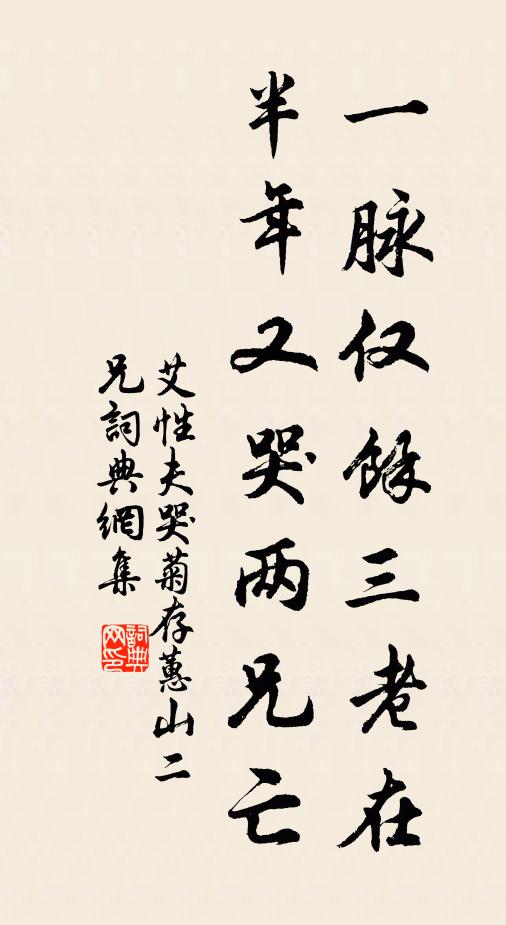 一脉仅餘三老在
半年又哭两兄亡
艾性夫哭菊存蕙山二
兄詞典網集
詞典
网印